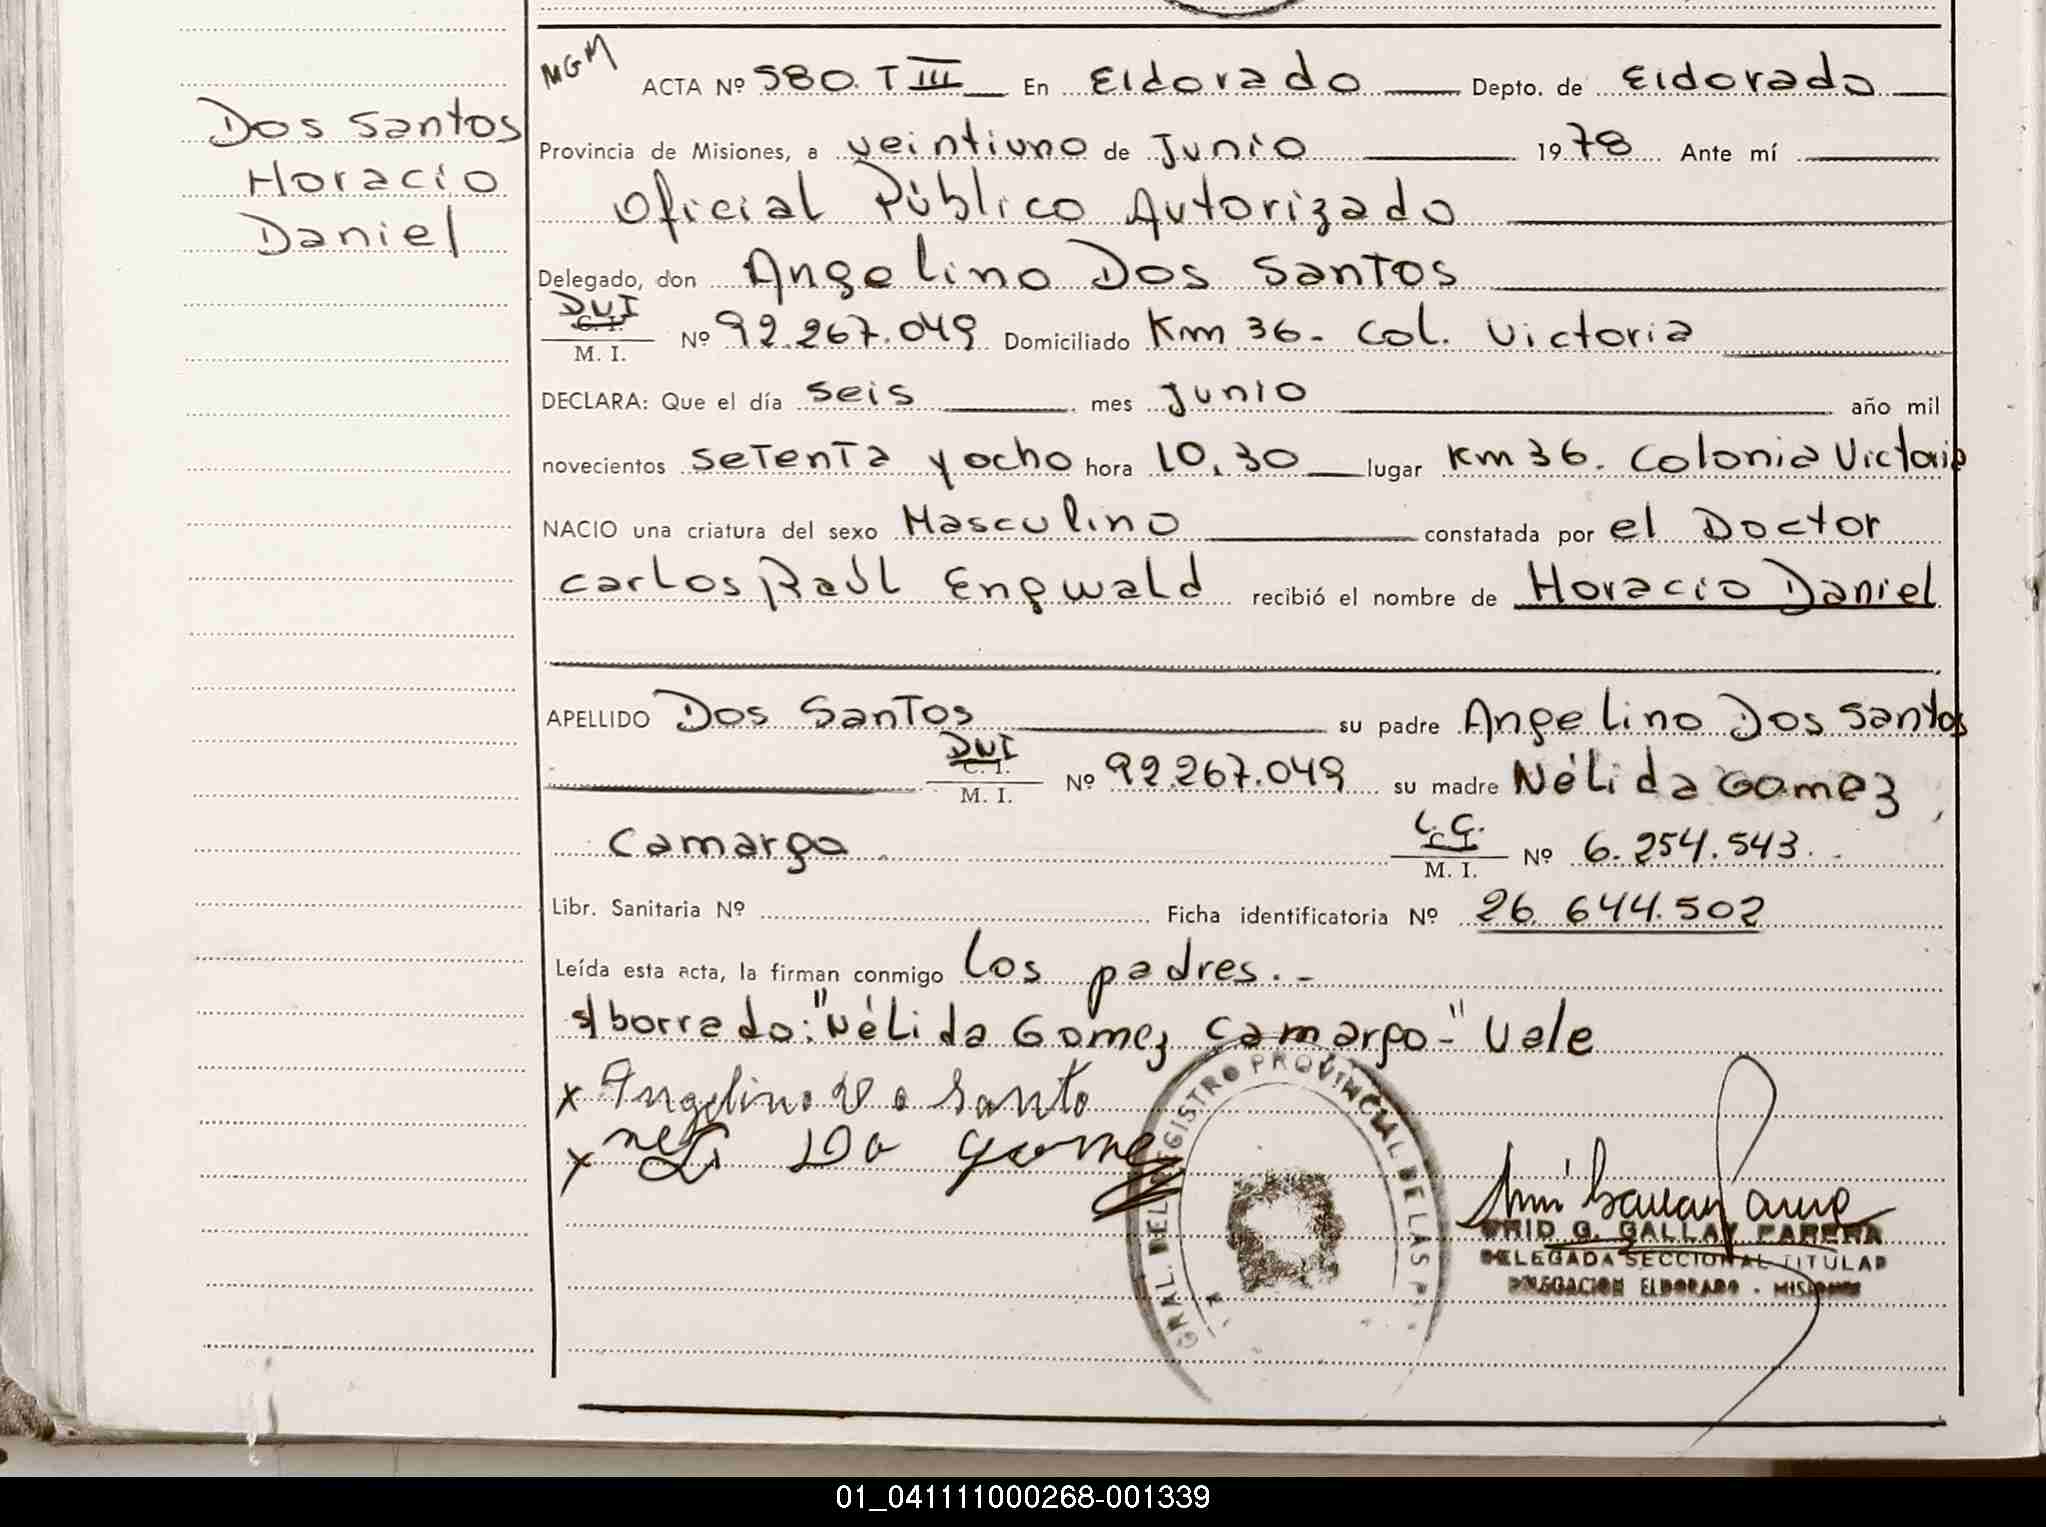 MGM
ACTA Nº 580. T III En Eldorado Depto. de Eldorado
Dos Santos
Horacio
Daniel
Provincia de Misiones, a veintiuno de Junio 1978 Ante mí
Oficial Público Autorizado
Delegado, don Angelino Dos Santos
DNI
C. I.
M. I. Nº 92.267.049 Domiciliado Km 36. Col. Victoria
DECLARA: Que el día seis mes Junio año mil
novecientos setenta y ocho hora 10,30 lugar Km 36. Colonia Victoria
NACIO una criatura del sexo Masculino constatada por el Doctor
Carlos Raúl Engwald recibió el nombre de Horacio Daniel
APELLIDO Dos Santos su padre Angelino Dos Santos
DNI
C. I.
M. I. Nº 92.267.049 su madre Nélida Gomez
Camargo L.C.
C. I.
M. I. Nº 6.254.543.
Libr. Sanitaria Nº Ficha identificatoria Nº 26.644.502
Leída esta acta, la firman conmigo los padres.-
s/borrado: "Nélida Gomez Camargo-" Vale
x Angelino Do Santo
x neli Da gomez
GRAL. DEL REGISTRO PROVINCIAL DE LAS P
G. GALLAY PARERA
DELEGADA SECCIONAL TITULAR
DELEGACION ELDORADO - MISIONES
01_041111000268-001339